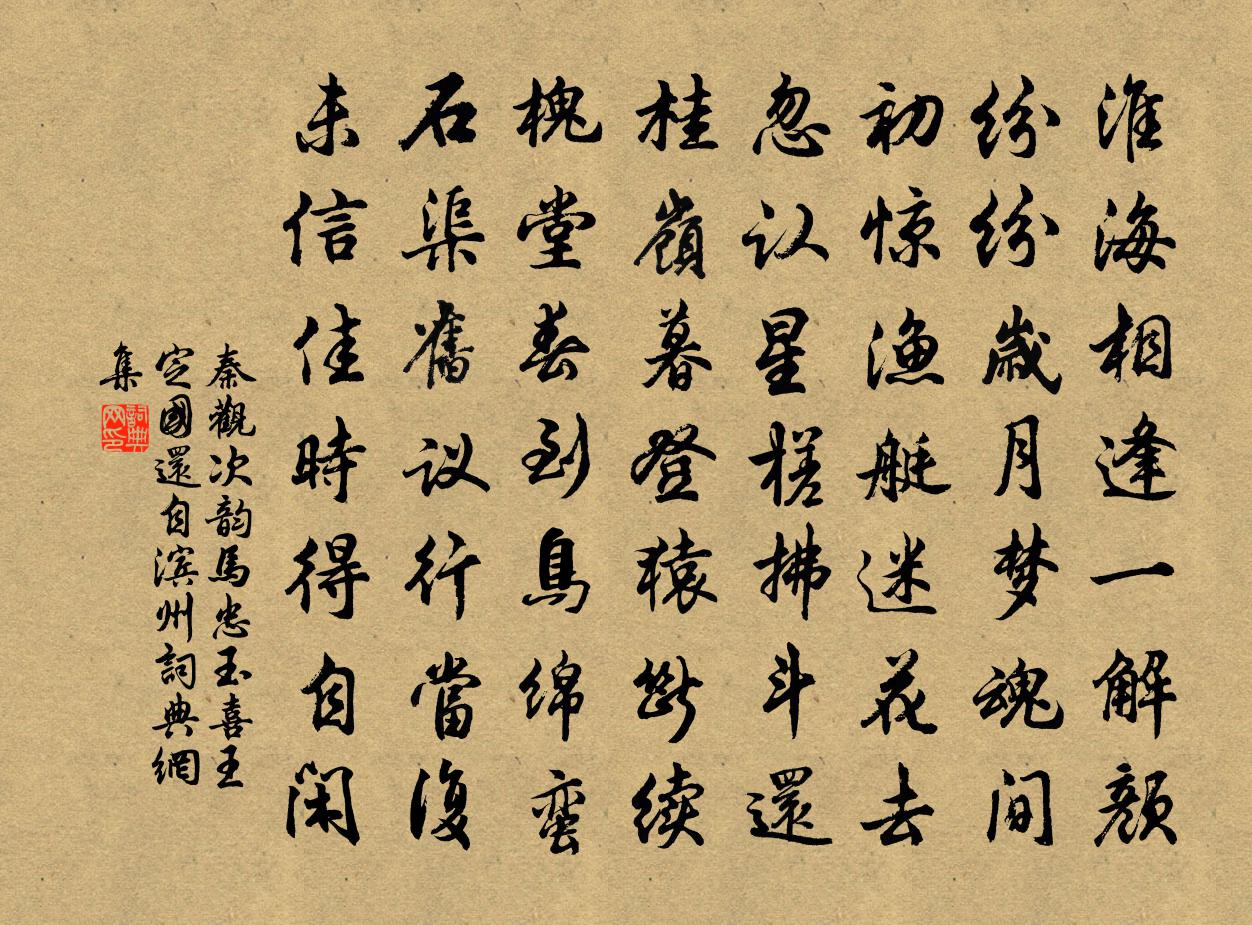 淮海相逢一解颜
纷纷岁月梦魂间
初惊渔艇迷花去
忽认星槎拂斗還
桂嶺暮登猿断续
槐堂春到鳥绵蛮
石渠舊议行當復
未信佳時得自闲
秦觀次韵馬忠玉喜王
定國還自滨州詞典網
集
詞典网印